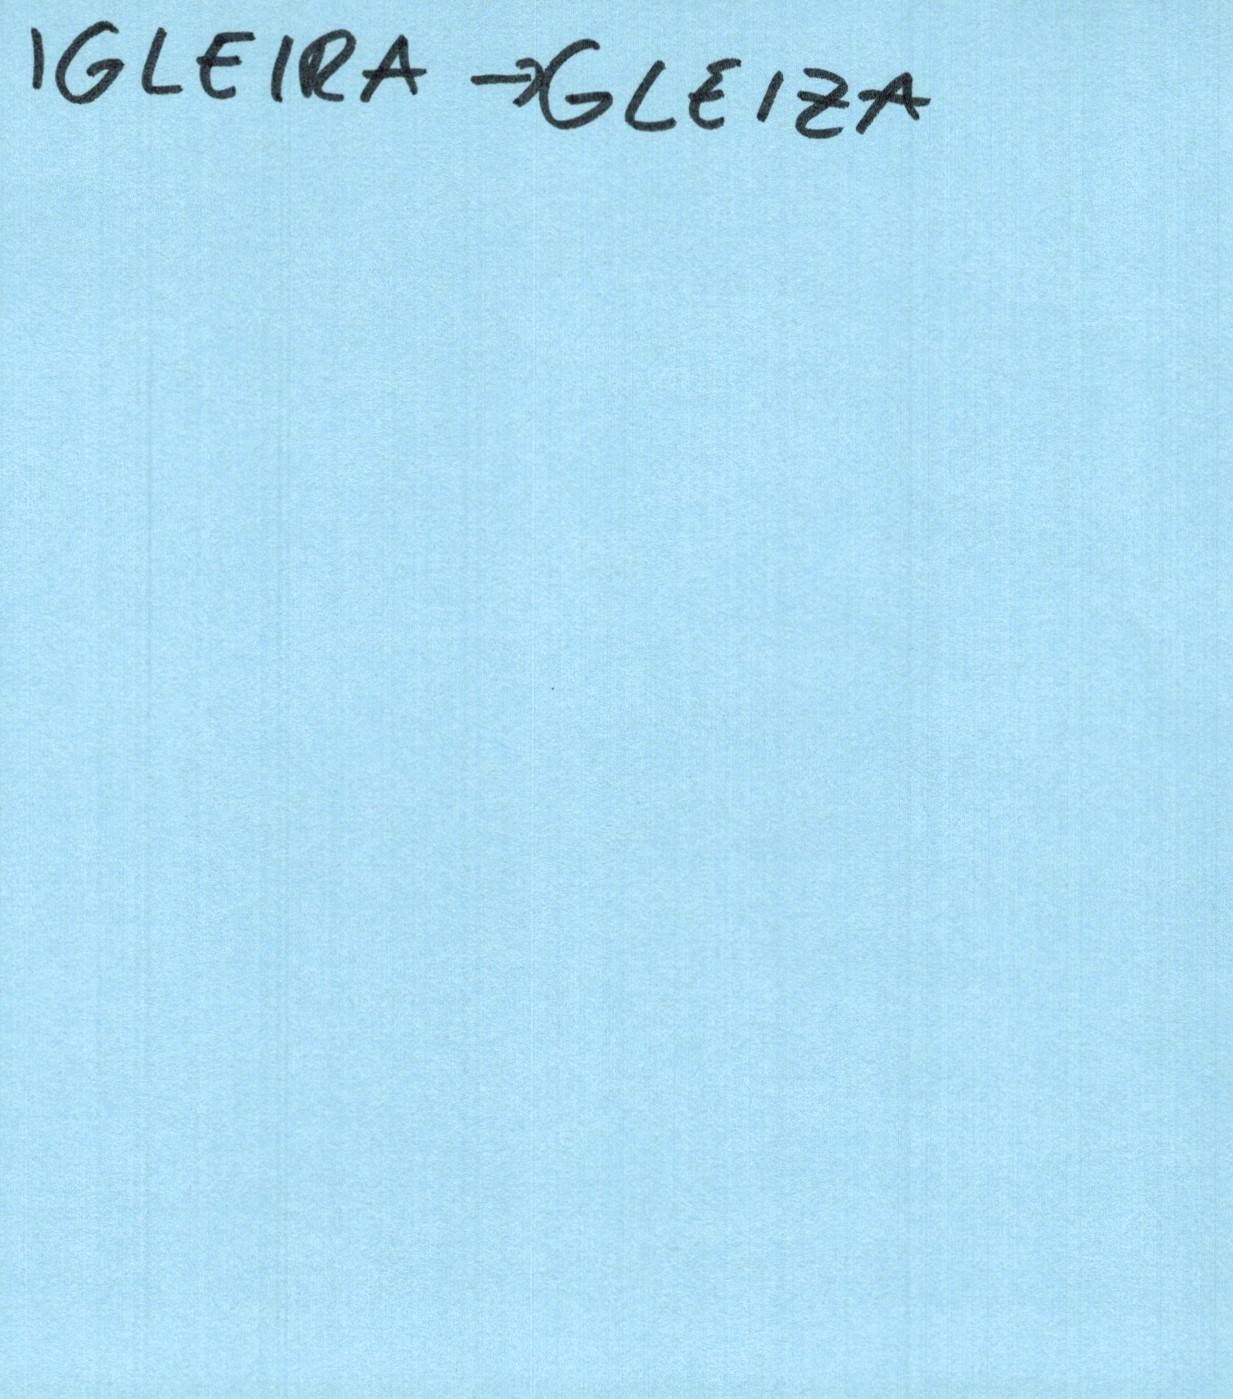 IGLEIRA → GLEIZA